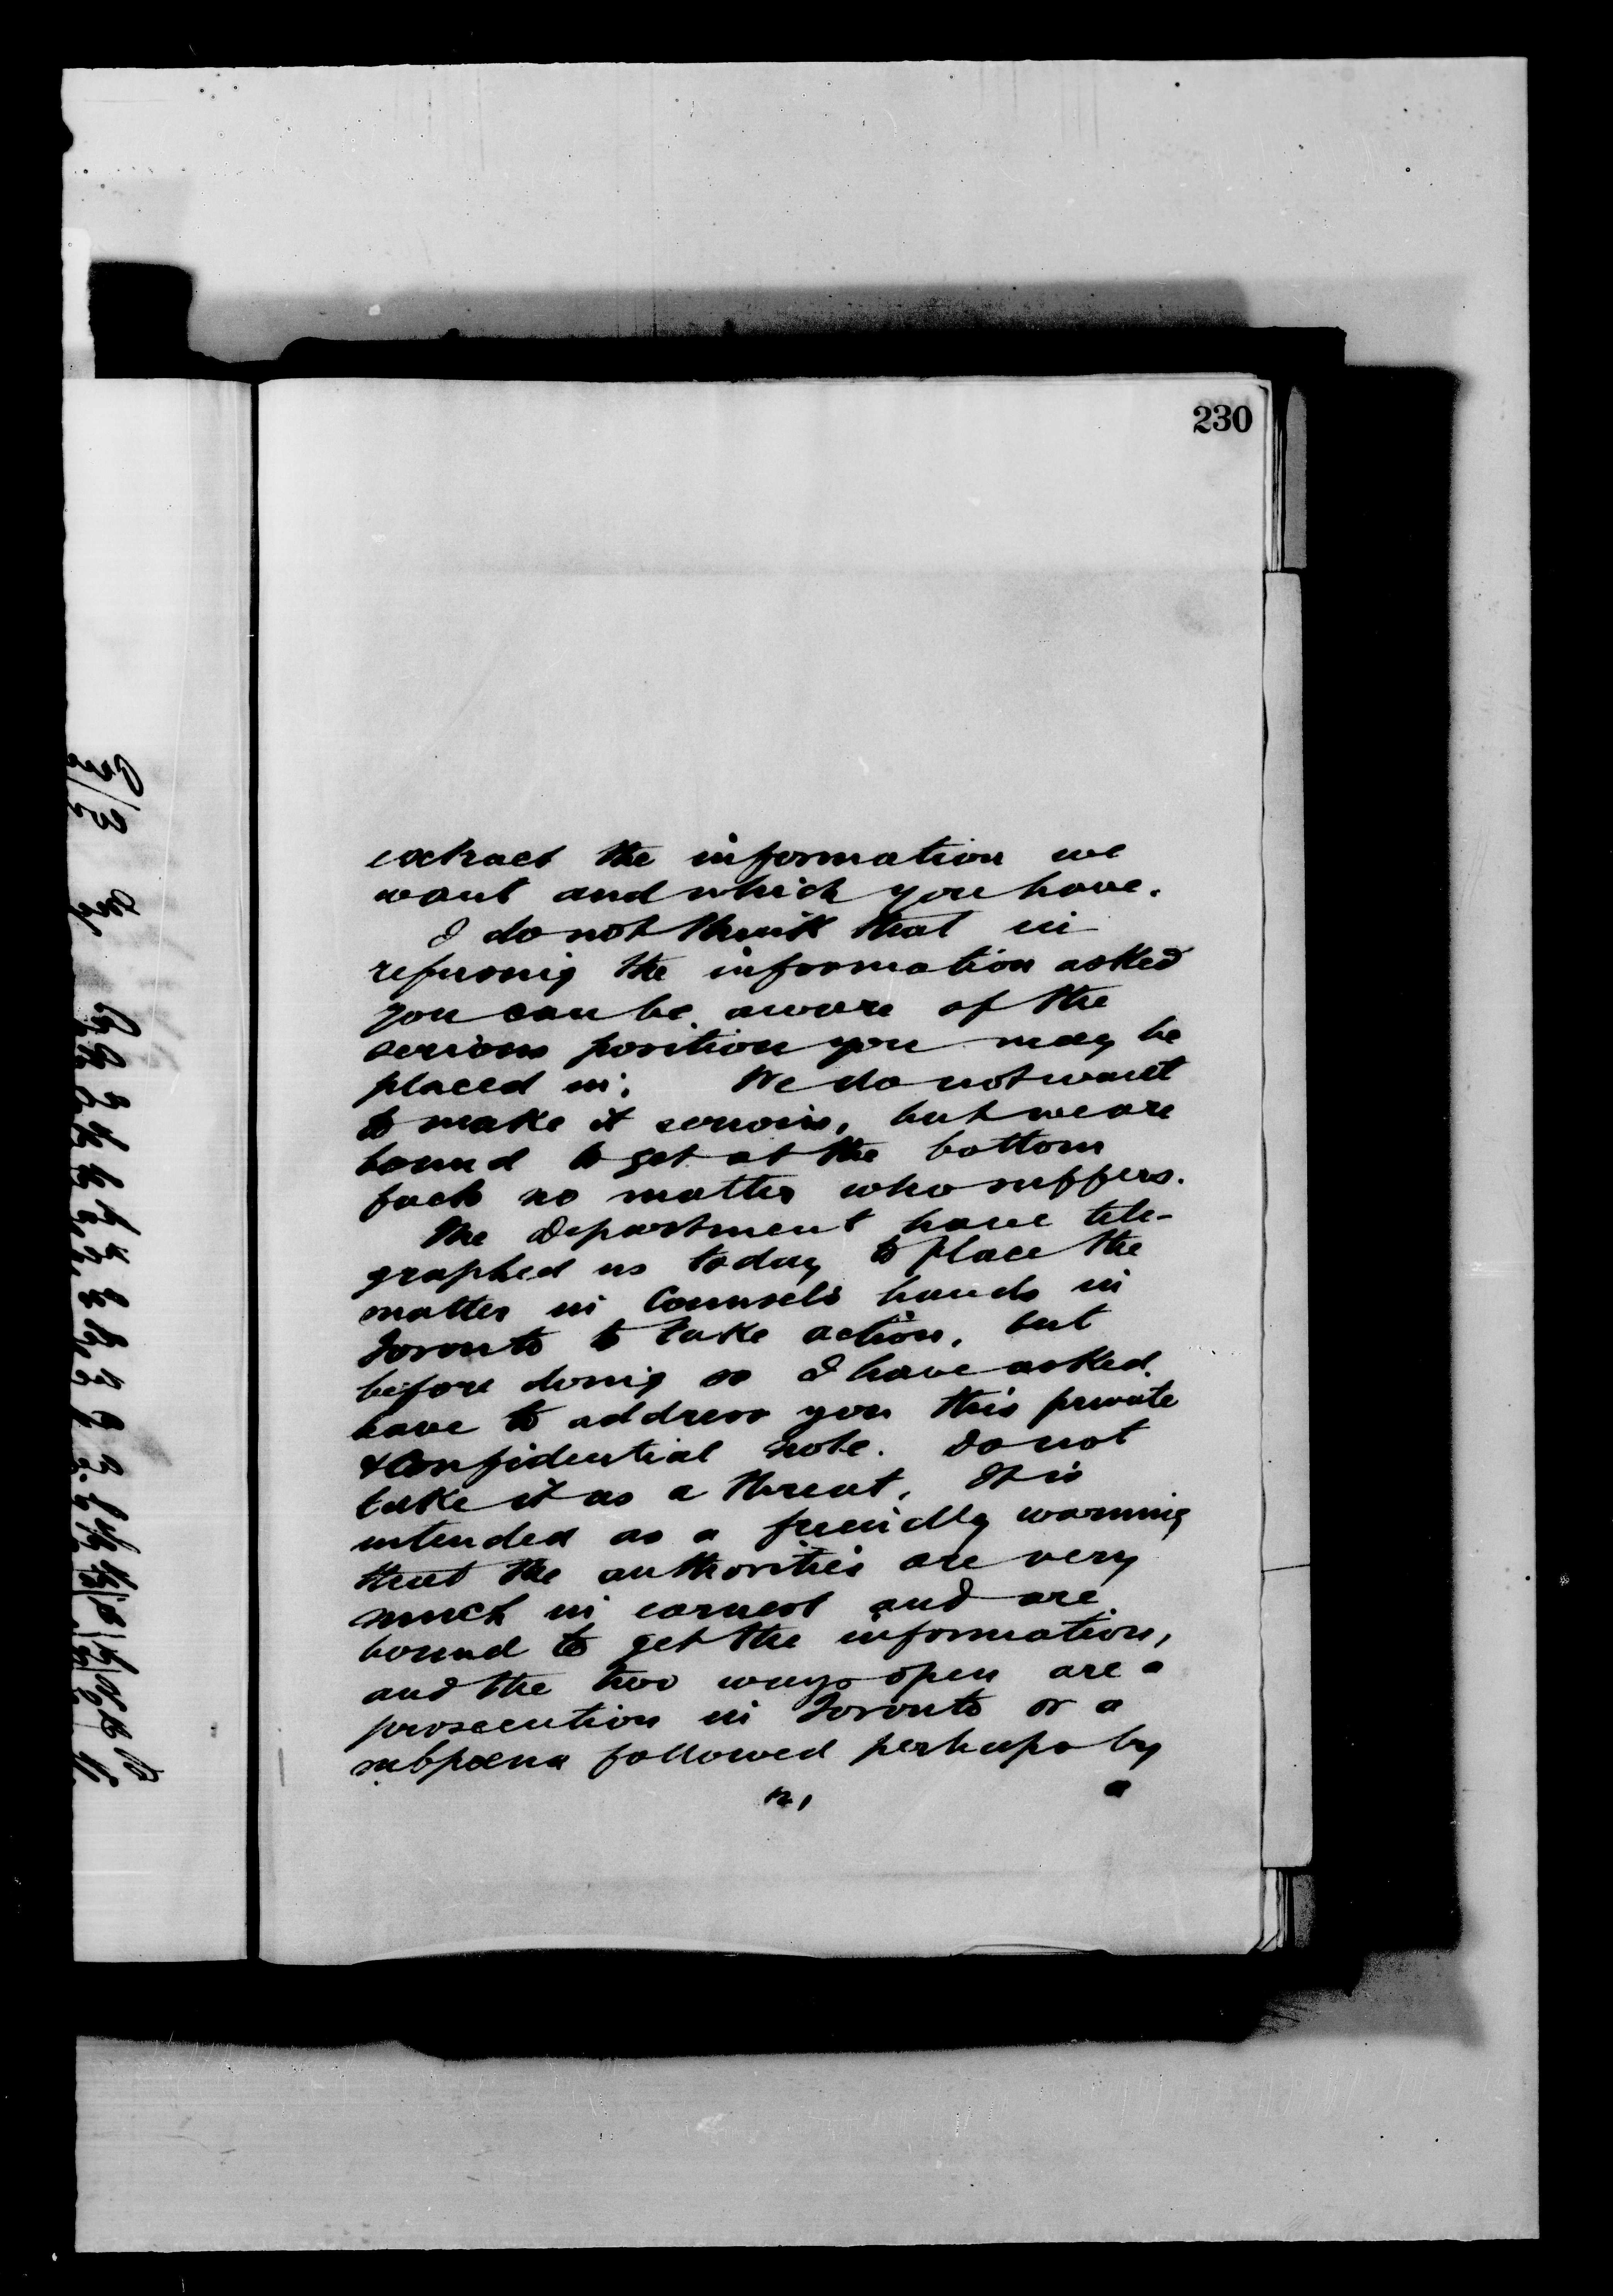 230
extract the information we
want and which you have.
I do not think that in
refusing the information asked
you can be aware of the
serious position you may be
placed in. We do not want
to make it serious, but we are
bound to get at the bottom
facts no matter who suffers.
The Department have tele-
graphed us today to place the
matter in Counsels hands in
Toronto to take action, but
before doing so I have asked
leave to address you this private
& Confidential note. Do not
take it as a threat. It is
intended as a friendly warning
that the authorities are very
much in earnest and are
bound to get the information,
and the two ways open are a
prosecution in Toronto or a
subpœna followed perhaps by
a